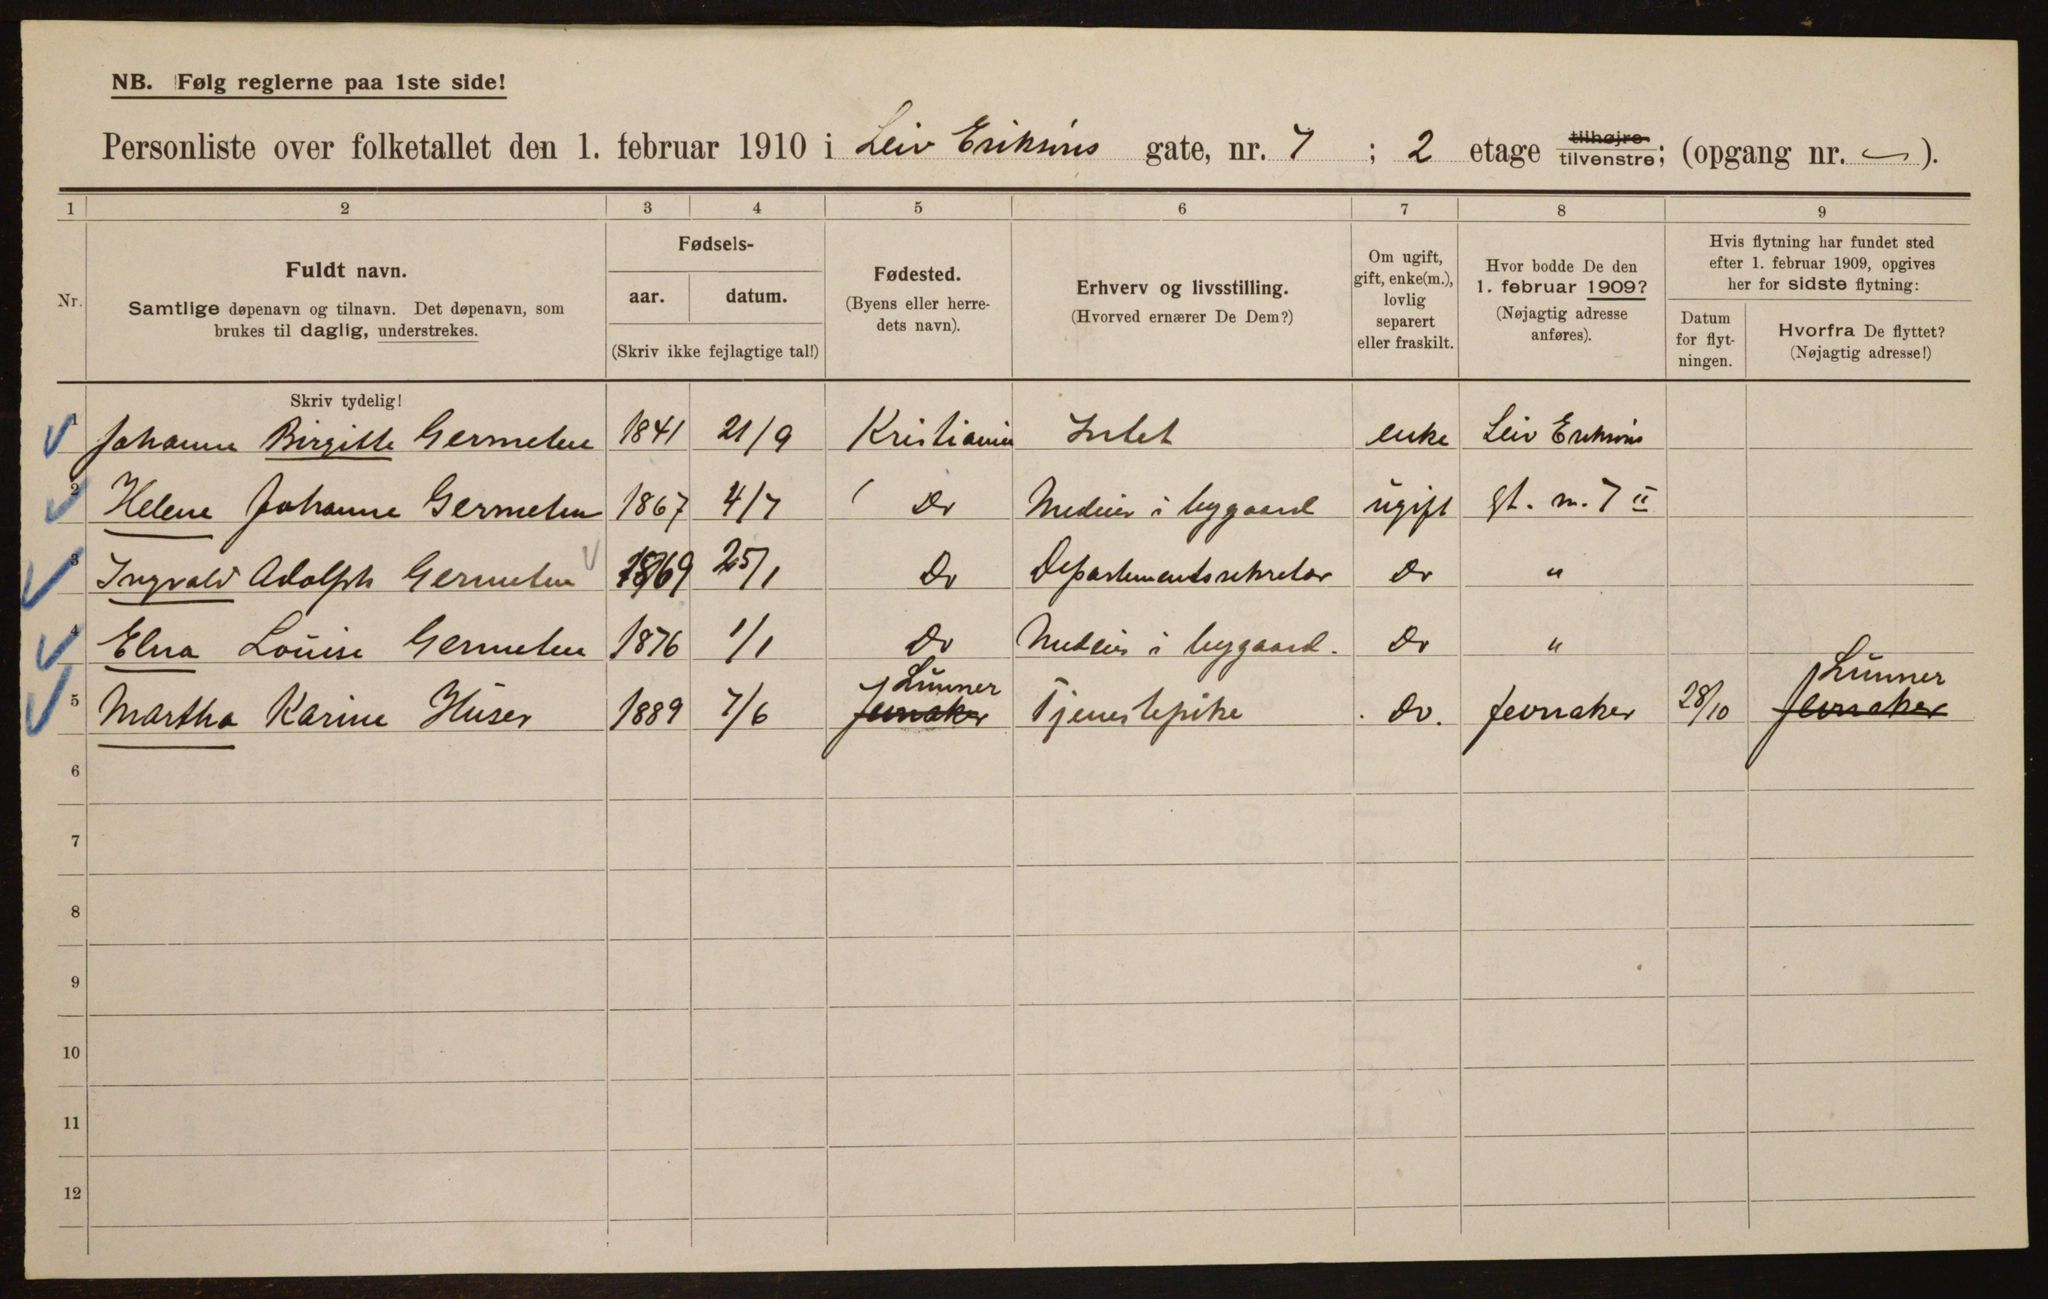 NB. Følg reglerne paa 1ste side!
Personliste over folketallet den 1. februar 1910 i Leiv Eriksøns gate, nr. 7 ; 2 etage tilhøjre tilvenstre; (opgang nr. — ).
1 2 3 4 5 6 7 8 9
Nr.
Fuldt navn.
Samtlige døpenavn og tilnavn. Det døpenavn, som
brukes til daglig, understrekes.
Fødsels-
aar. datum.
(Skriv ikke fejlagtige tal!)
Fødested.
(Byens eller herre-
dets navn).
Erhverv og livsstilling.
(Hvorved ernærer De Dem?)
Om ugift,
gift, enke(m.),
lovlig
separert
eller fraskilt.
Hvor bodde De den
1. februar 1909?
(Nøjagtig adresse
anføres).
Hvis flytning har fundet sted
efter 1. februar 1909, opgives
her for sidste flytning:
Datum
for flyt-
ningen.
Hvorfra De flyttet?
(Nøjagtig adresse!)
Skriv tydelig!
1 Johanne Birgitte Germeten 1841 21/9 Kristiania Intet enke Leiv Eriksøns
2 Helene Johanne Germeten 1867 4/7 Do Medeier i bygaard ugift gt. nr. 7 II
3 Ingvald Adolph Germeten 1869 25/1 Do Departementssekretær Do "
4 Elna Louise Germeten 1876 1/1 Do Medeier i bygaard. Do "
Lunner Lunner
5 Martha Karine Huser 1889 7/6 Jevnaker Tjenestepike Do. Jevnaker 28/10 Jevnaker
6
7
8
9
10
11
12